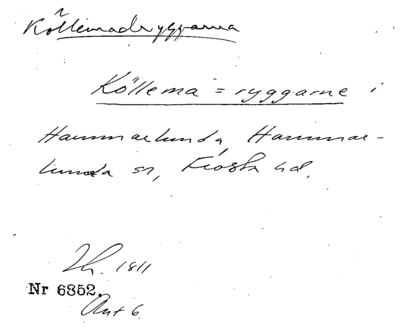 Köllemadsryggarna
Köllema=ryggarne i
Hammarlunda, Hammar-
lunda sn, Frosta hd.
Lh. 1811
Nr 6352.
Akt 6.